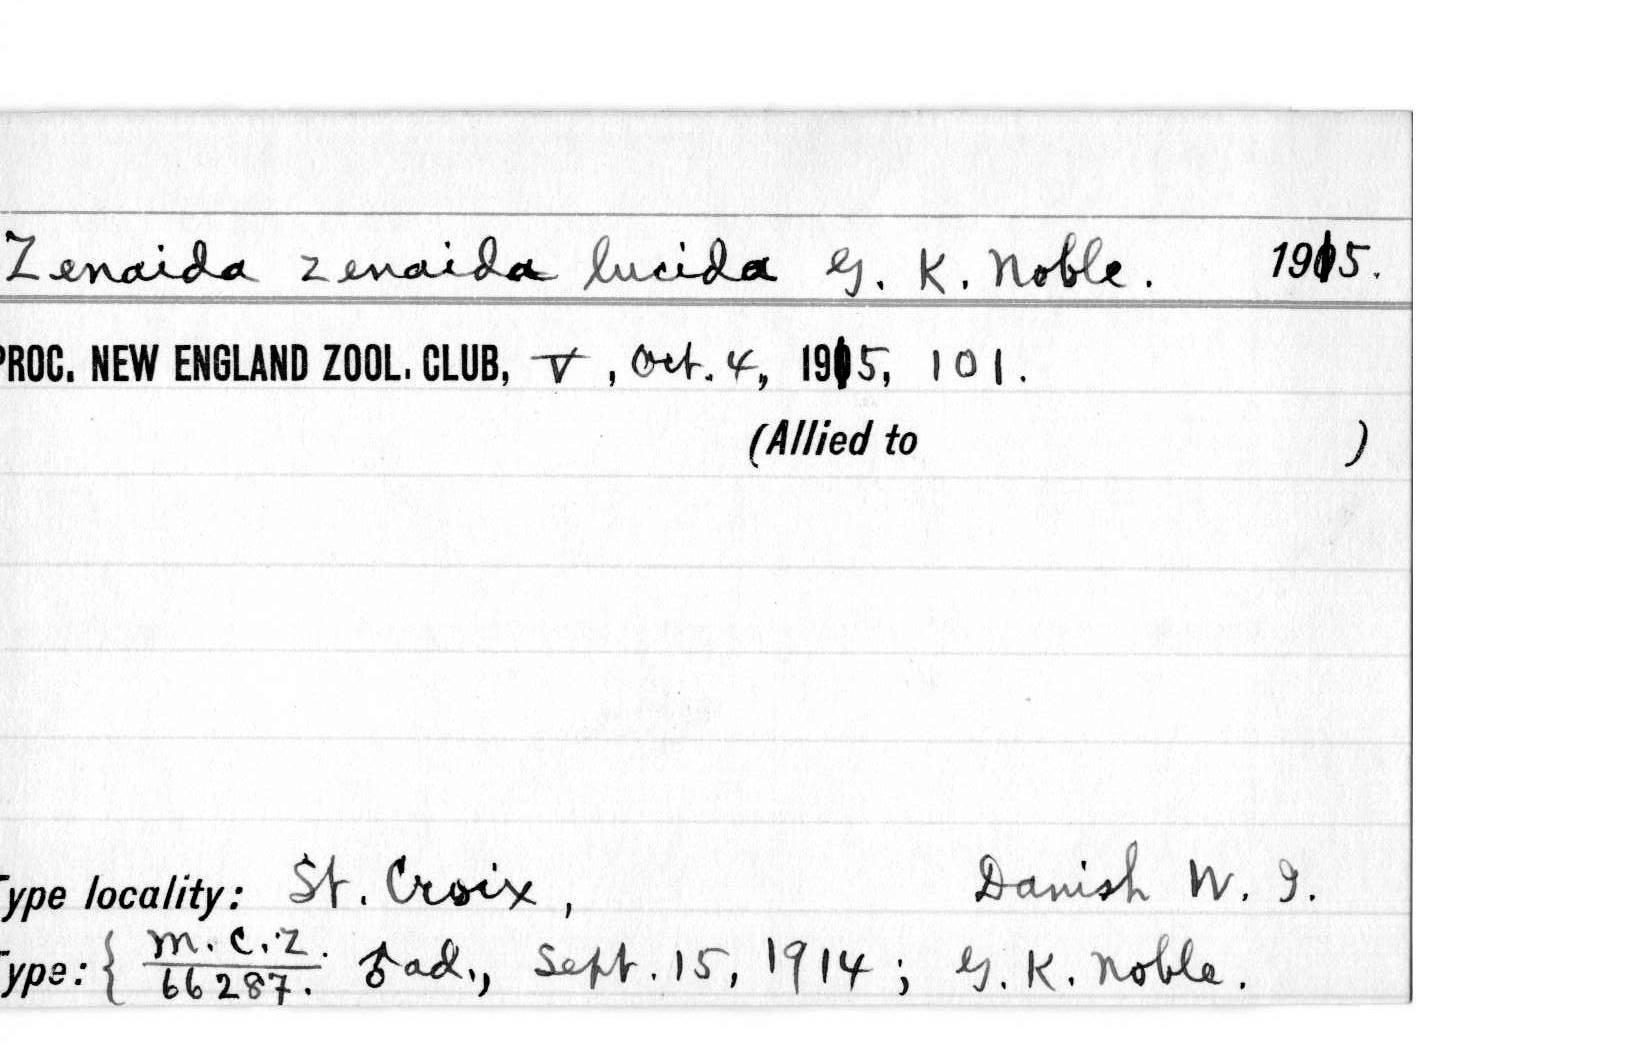 Zenaida zenaida lucida G. K. Noble. 1915.
PROC. NEW ENGLAND ZOOL. CLUB, V, Oct. 4, 1915, 101.
(Allied to )
Type locality: St. Croix, Danish W. I.
Type: { M.C.Z. 66287. ♂ ad., Sept. 15, 1914; G. K. Noble.